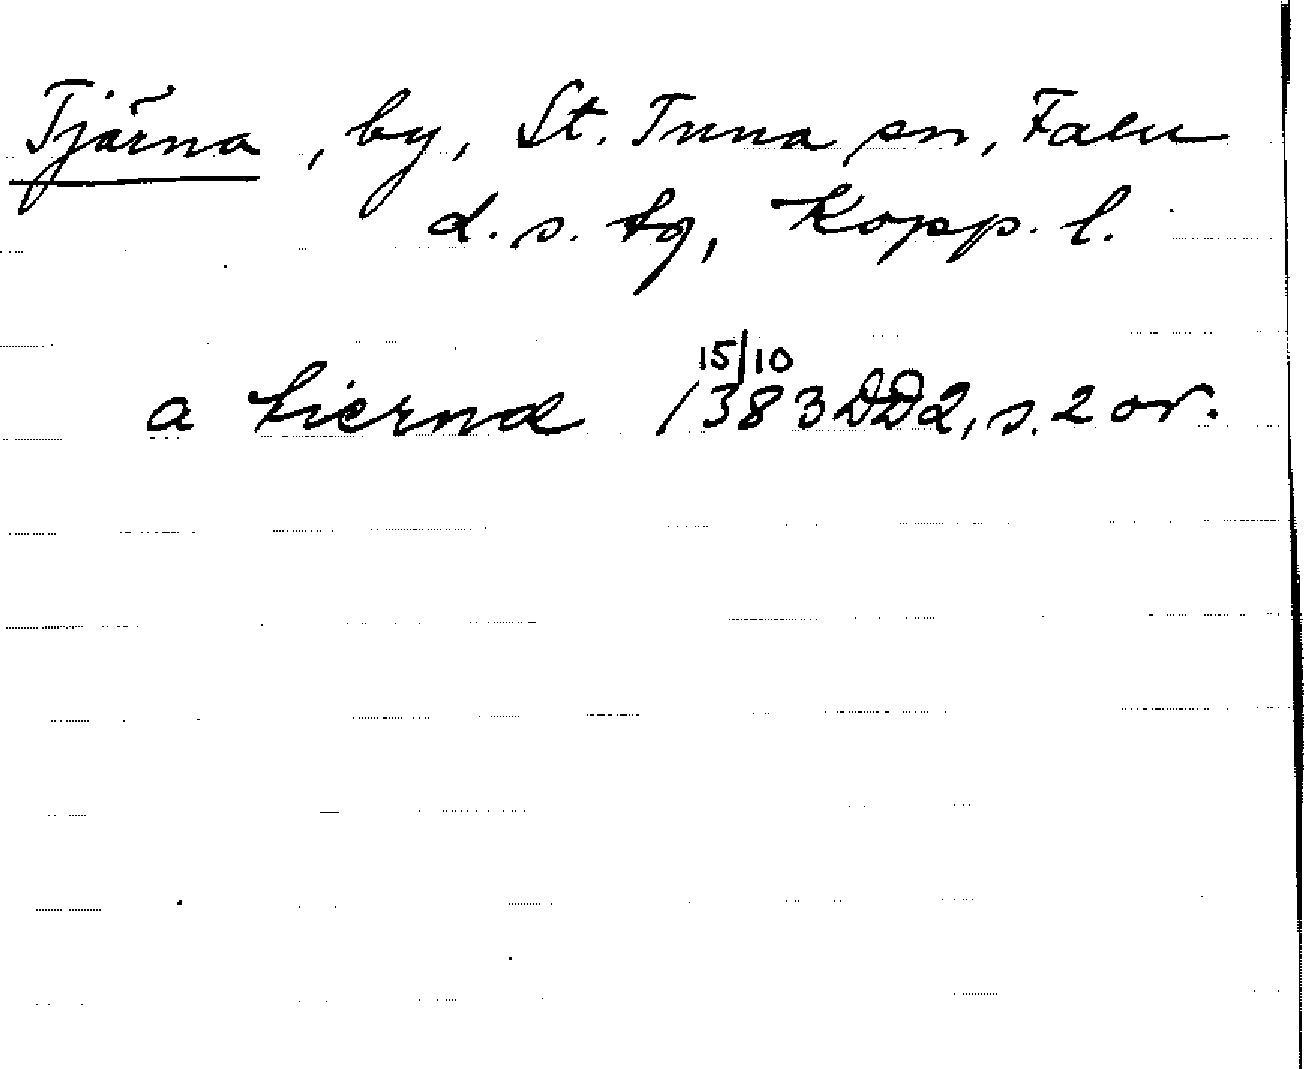 Tjärna, by, St. Tuna sn, Falu
d. s. tg, Kopp. l.
15/10
a tierna 1383 DD2, s. 2 or.